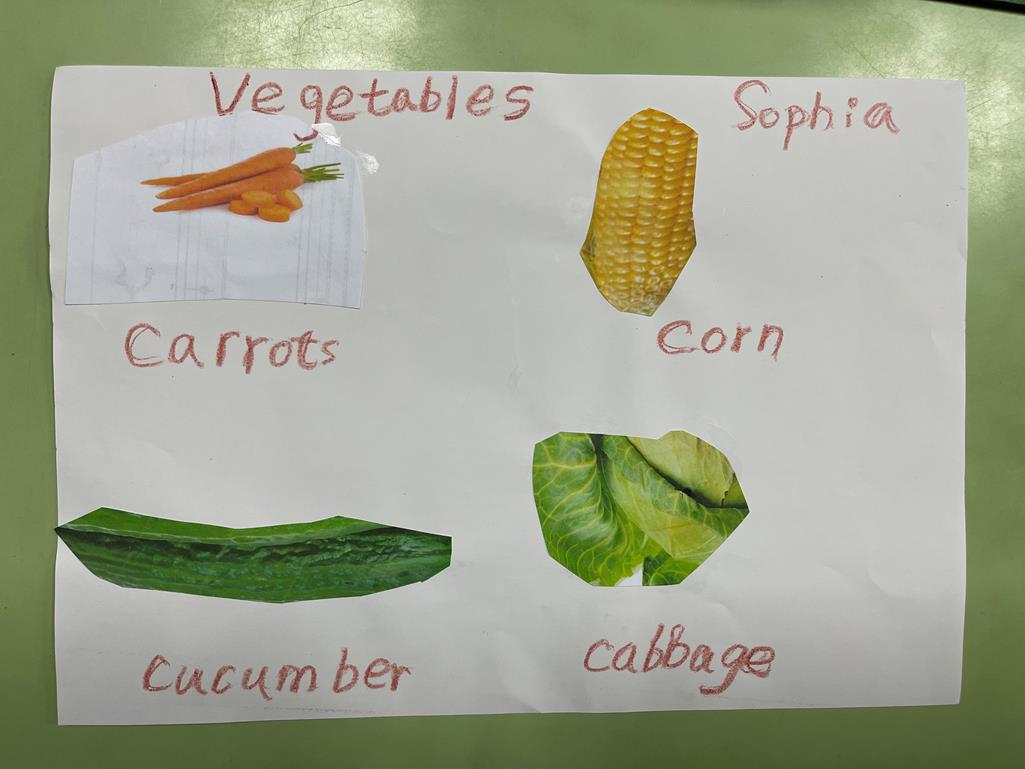 Vegetables
Sophia
Carrots
Corn
cucumber
cabbage